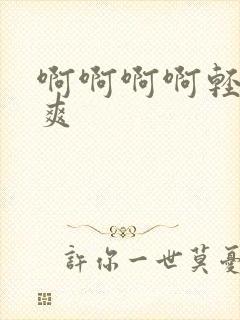 啊啊啊啊輕
爽
許你一世莫憂